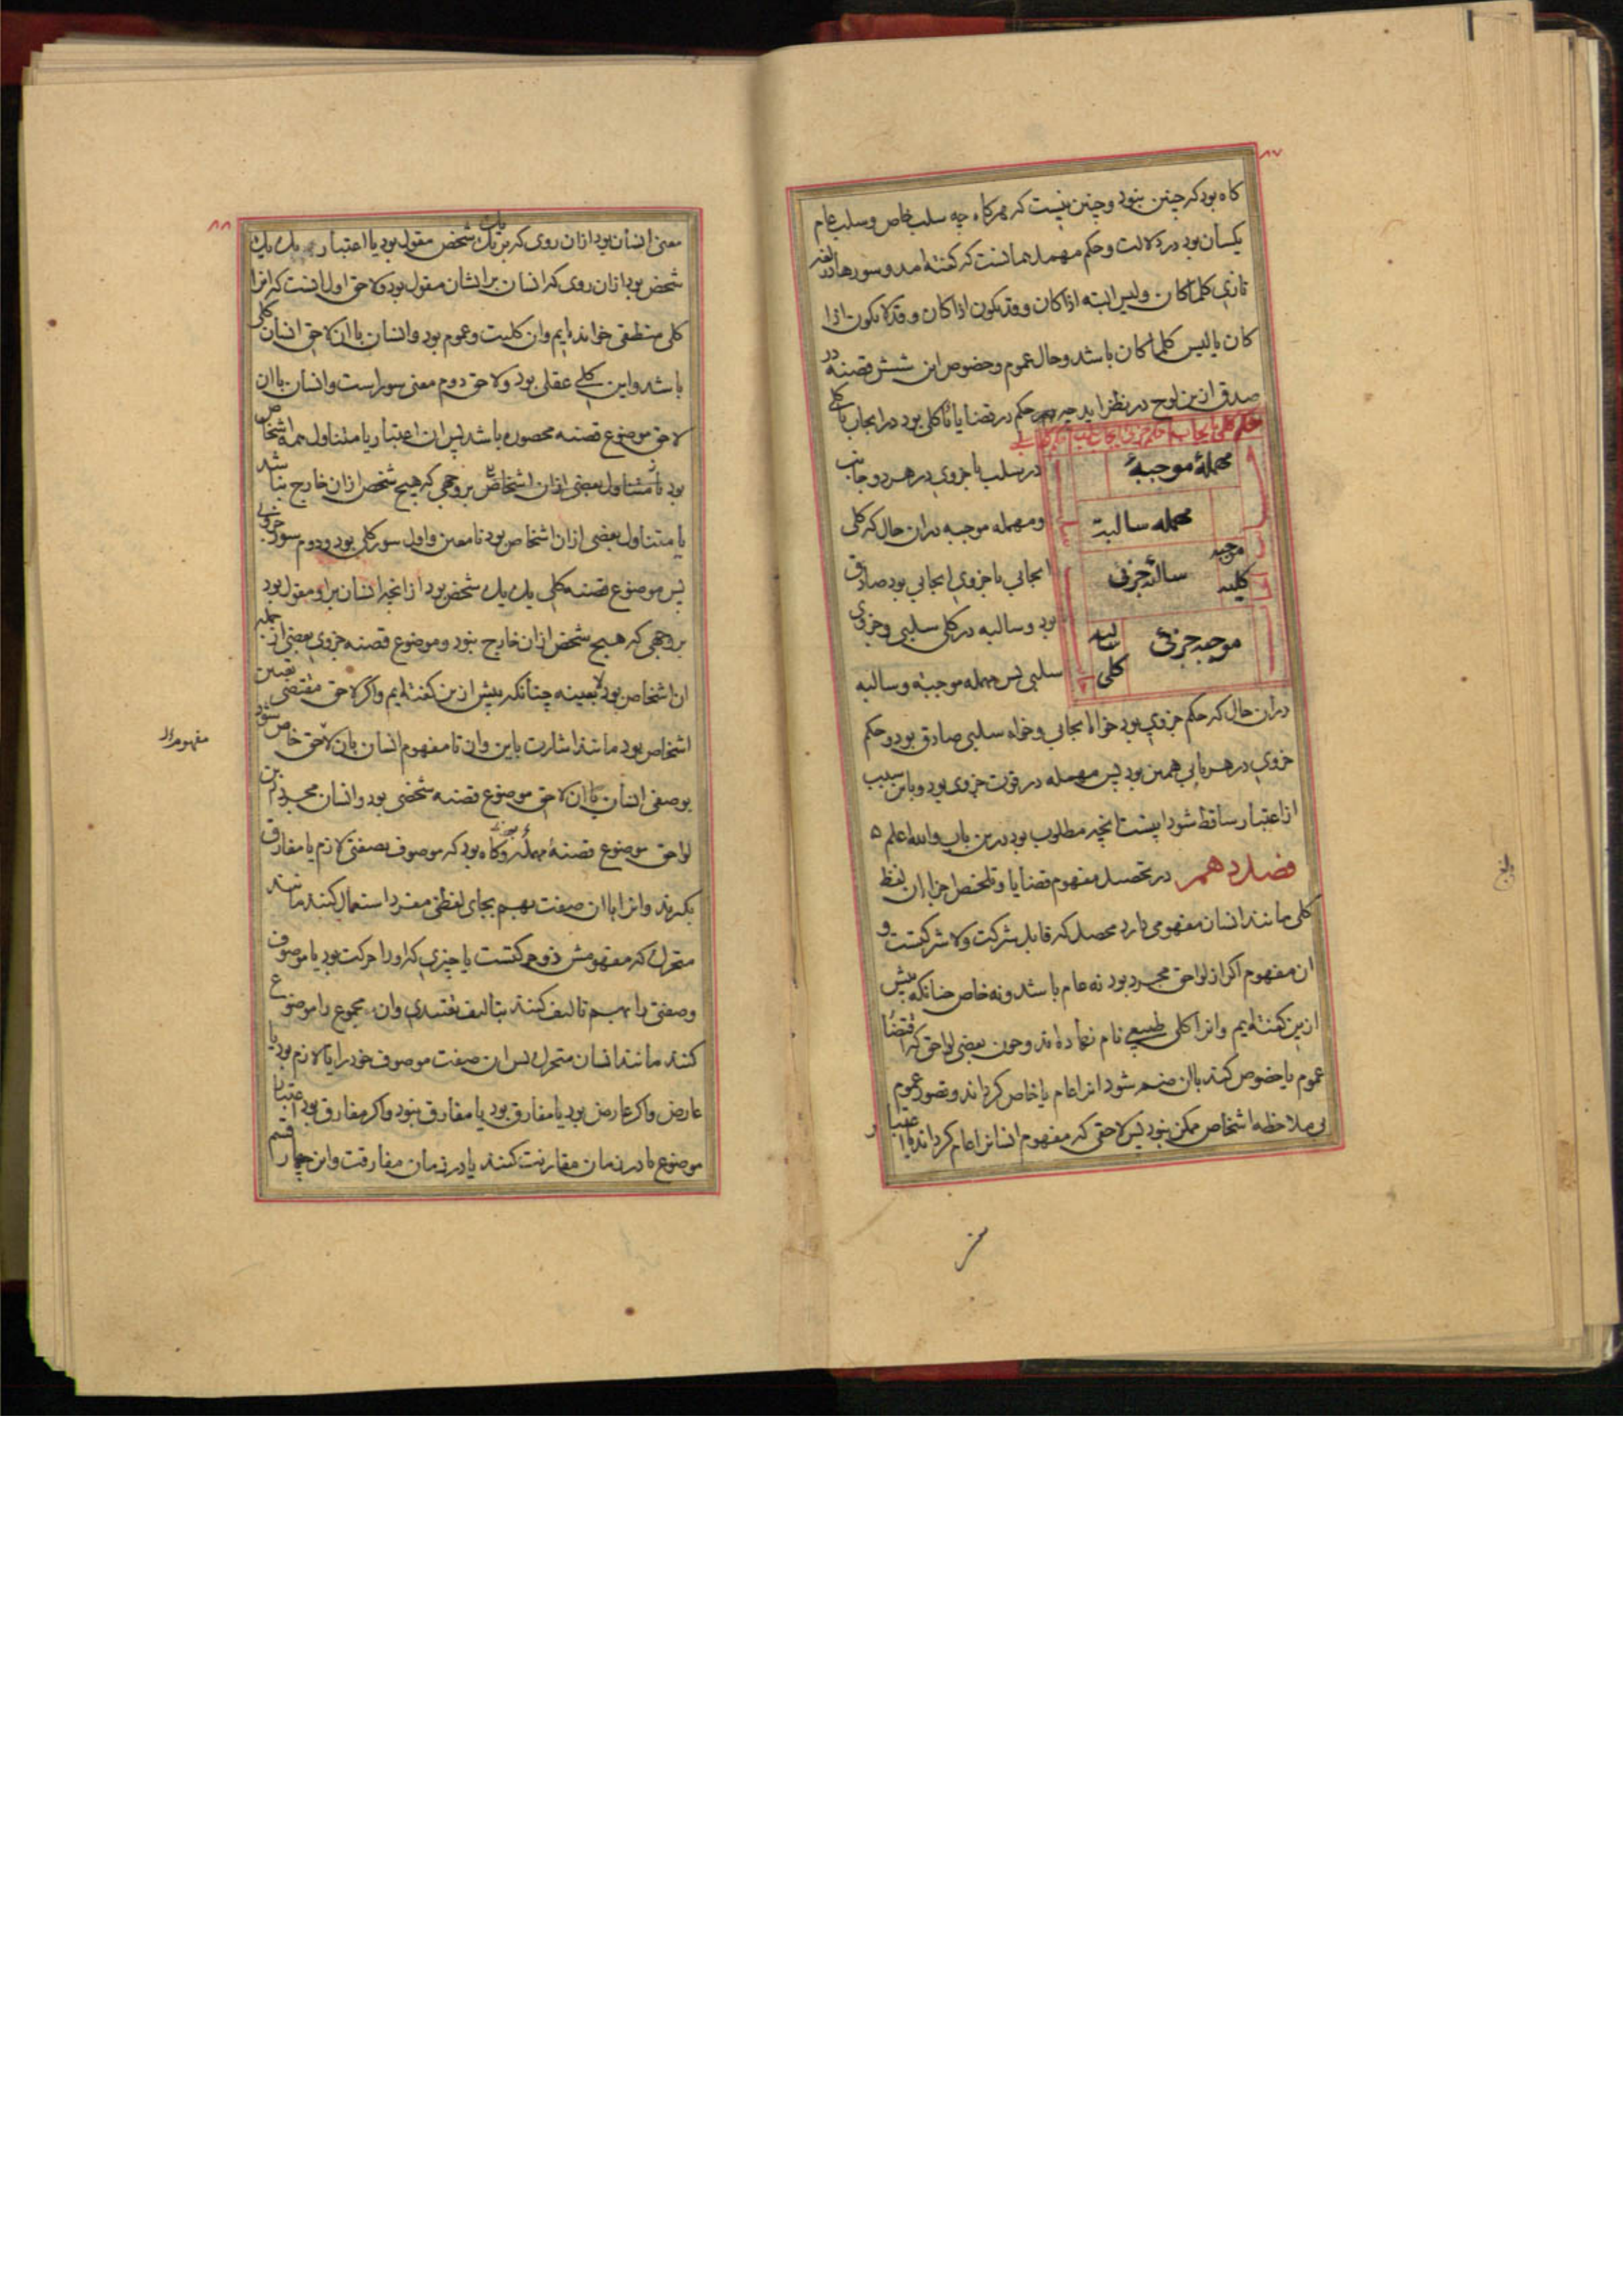 ۸۷
کاه بود که چنین نبود و چنین نیست که هرکاه چه سلب خاص و سلب عام
یکسان بود در دلالت و حکم مهمله همانست که کفته امد و سورها در لغة
تازی کلما کان و لیس البته اذا کان و قد یکون اذا کان و قد لا یکون اذا
کان یا لیس کلما کان باشد و حال عموم و خصوص این شش قضیه در
صدق ازین لوح در نظر اید چه حکم در قضایا یا کلی بود در ایجاب یا کلی
مهملهٔ موجبهٔ
مهمله سالبة
موجبه کلیه
سالبهٔ جزئی
سالبه کلی
موجبه جزئی
در سلب یا جزوی در هر دو جانب
و مهمله موجبه دران حال که کلی
ایجابی یا جزوی ایجابی بود صادق
بود و سالبه در کلی سلبی و جزوی
سلبی پس مهمله موجبه و سالبه
دران حال که حکم جزوی بود خواه ایجابی و خواه سلبی صادق بود و حکم
جزوی در هر بابی همین بود پس مهمله در قوت جزوی بود و باین سبب
از اعتبار ساقط شود اینست انچه مطلوب بود درین باب والله اعلم ه
فصل دهم در تحصیل مفهوم قضایا و تلخیص اجزاء ان لفظ
کلی مانند انسان مفهومی دارد محصل که قابل شرکت و لا شرکتست و
ان مفهوم اکر از لواحق مجرد بود نه عام باشد و نه خاص چنانکه پیش
ازین کفته ایم و انرا کلی طبیعی نام نهاده اند و چون بعضی لواحق که اقتضاء
عموم یا خصوص کند بان ضم شود انرا عام یا خاص کرداند و تصور عموم
بی ملاحظه اشخاص ممکن نبود پس لاحقی که مفهوم انسانرا عام کرداند یا اعتبار
۸۸
معنی انسان بود ازان روی که بر یک یک شخص مقول بود یا اعتبار یک یک
شخص بود ازان روی که انسان بر ایشان مقول بود و لاحق اول انست که انرا
کلی منطقی خوانده ایم وان کلیت و عموم بود و انسان با ان لاحق انسان کلی
باشد و این کلی عقلی بود و لاحق دوم معنی سور است و انسان با ان
لاحق موضوع قضیه محصوره باشد پس ان اعتبار یا متناول همه اشخاص
بود یا متناول بعضی ازان اشخاص بر وجهی که هیچ شخص ازان خارج نباشد
یا متناول بعضی ازان اشخاص بود نا معین و اول سور کلی بود و دوم سور جزوی
پس موضوع قضیه کلی یک یک شخص بود از انچه انسان بر او مقول بود
بر وجهی که هیچ شخص ازان خارج نبود و موضوع قضیه جزوی بعضی از جمله
ان اشخاص بود لا بعینه چنانکه پیش ازین کفته ایم و اکر لاحق مقتضی تعیین
اشخاص بود مانند اشارت باین وان تا مفهوم انسان بان لاحق خاص شود
بوصفی انسان با ان لاحق موضوع قضیه شخصی بود و انسان مجرد ازین
لواحق موضوع قضیهٔ مهمله بود و کاه بود که موضوف بصفتی لازم یا مفارق
بکیرند و انرا با ان صفت بهم بجای لفظی مفرد استعمال کنند مانند
متحرک که مفهومش ذو حرکتست یا چیزی که او را حرکت بود یا موصوف
وصفتی را بهم تالیف کنند بتالیف تقییدی وان مجموع را موضوع
کنند مانند انسان متحرک پس ان صفت موصوف خود را یا لازم بود یا
عارض و اکر عارض بود یا مفارق بود یا مفارق نبود و اکر مفارق بود اعتبار
موضوع یا در زمان مقارنت کنند یا در زمان مفارقت و این چهار قسم